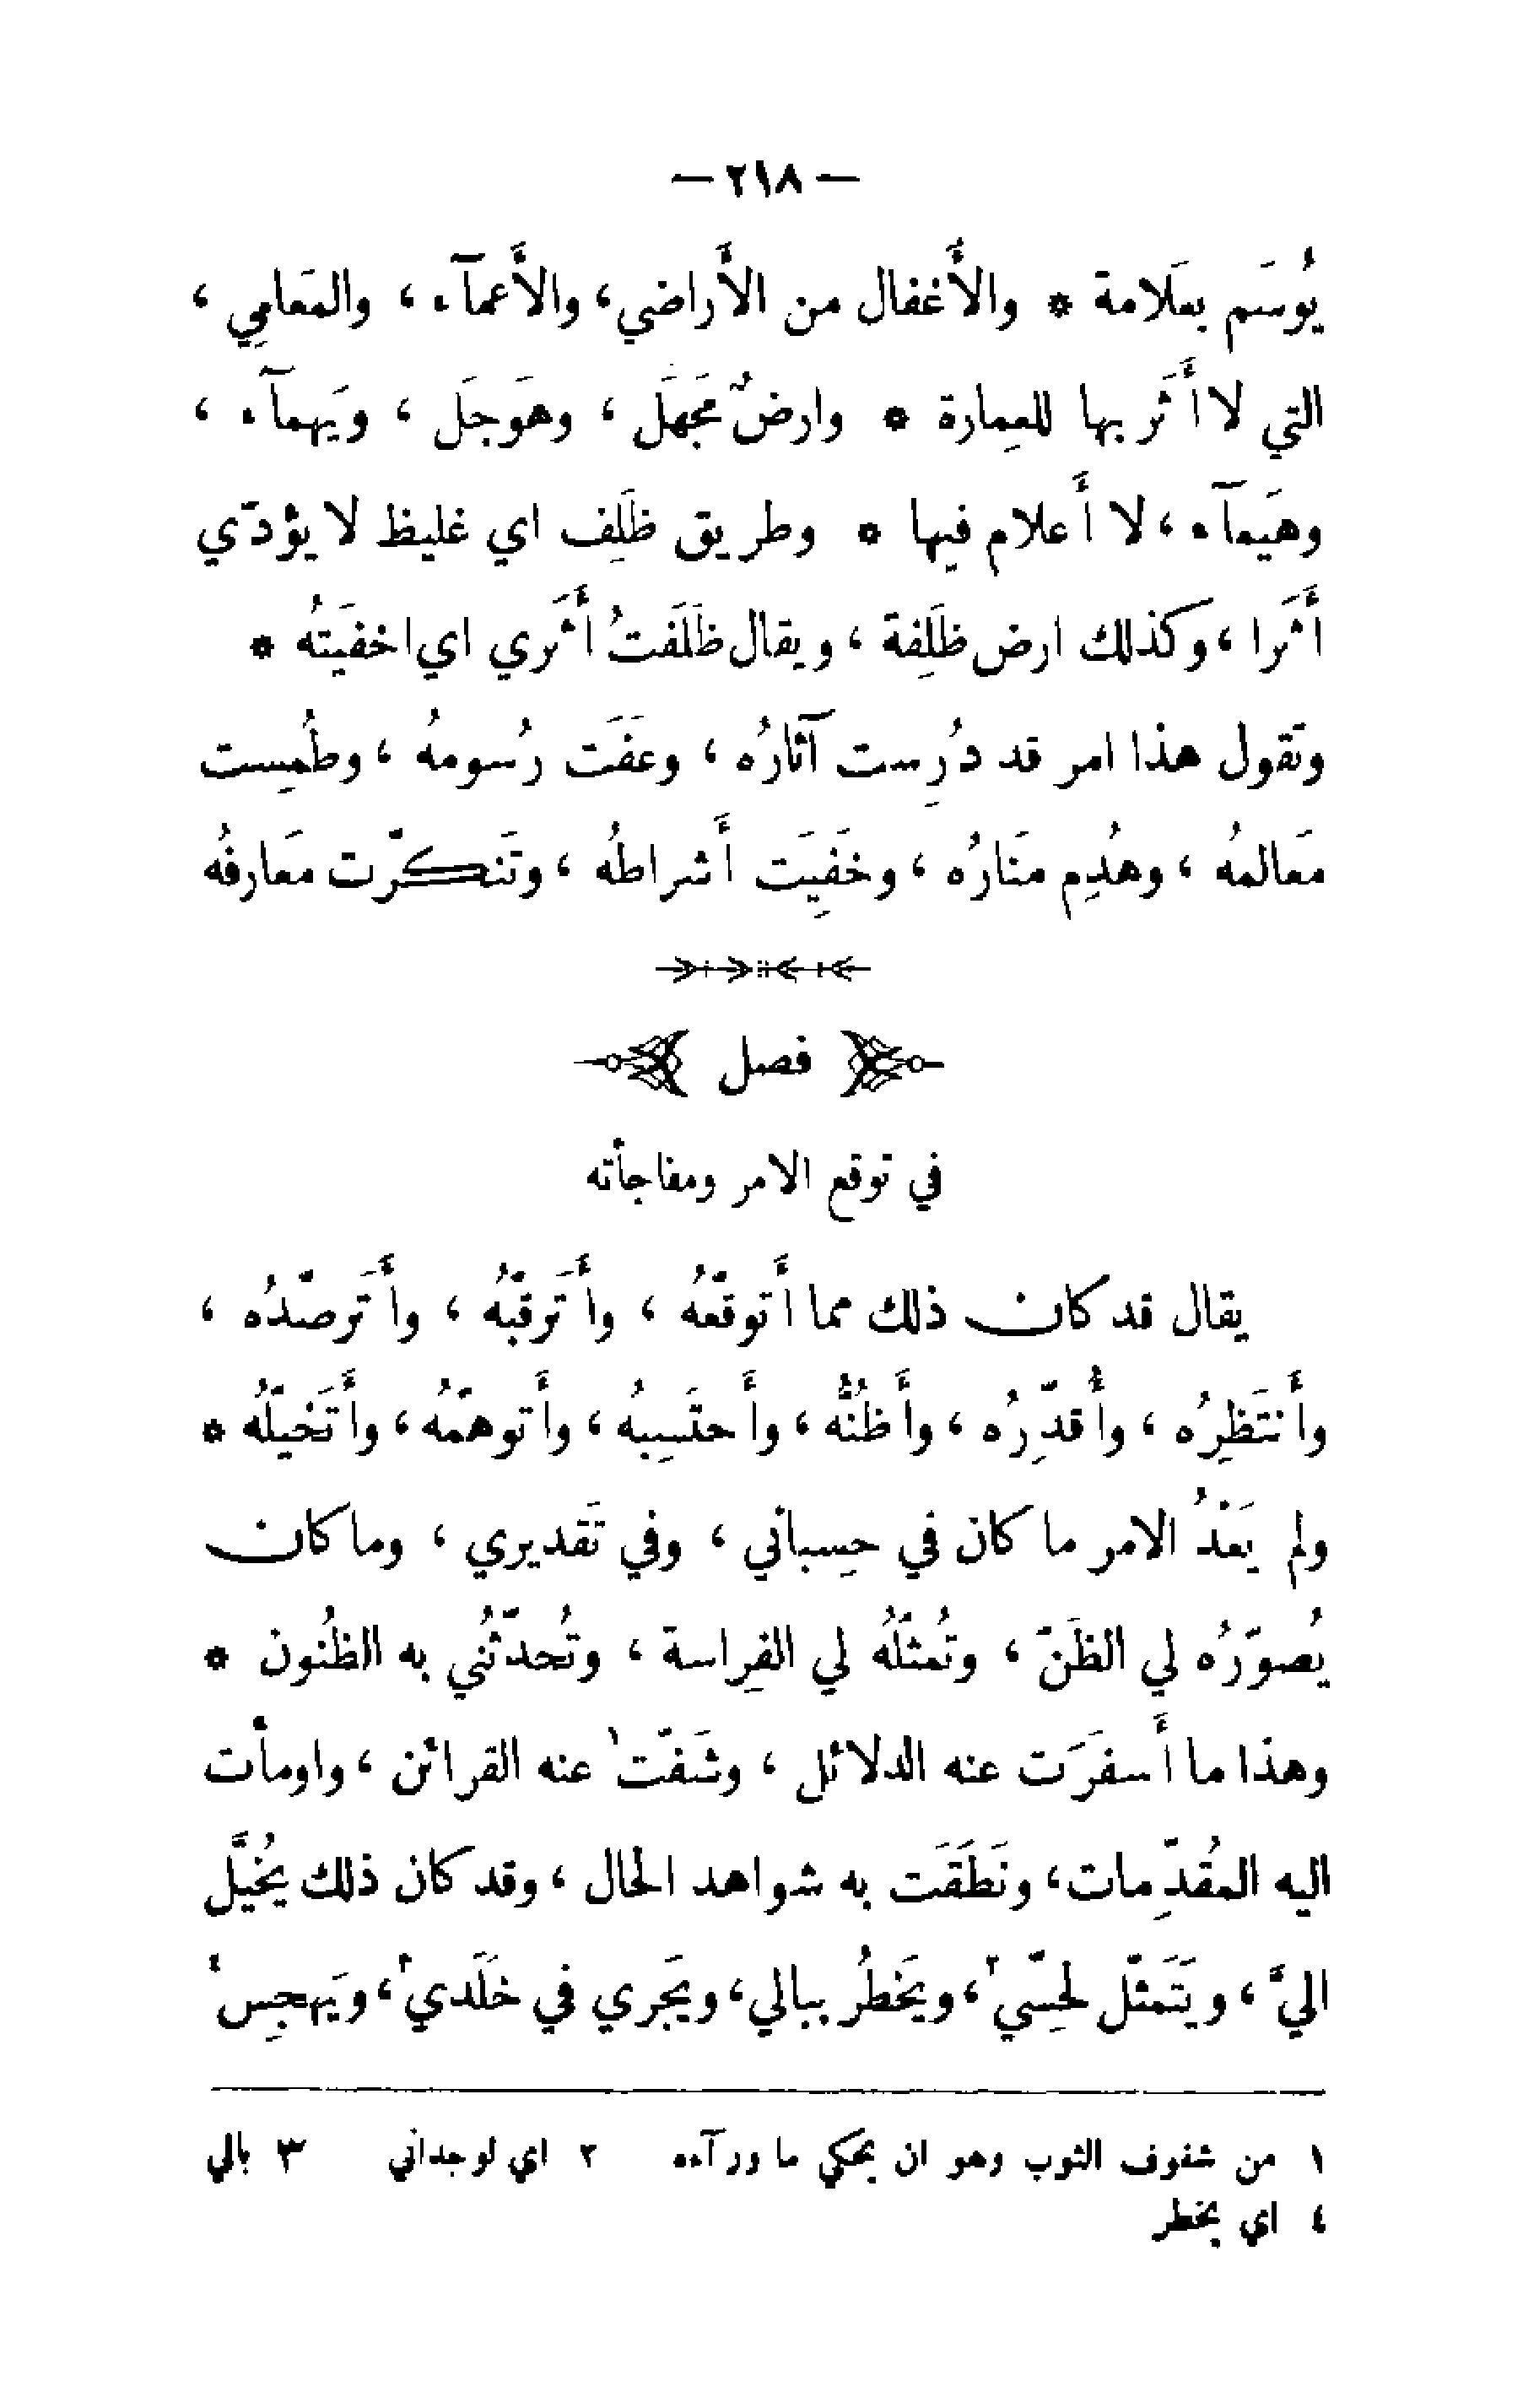 — ٢١٨ —
يُوسَم بعَلامة * والأَغفال من الأَراضي، والأَعمآء ، والمَعامِي ،
التي لا أَثَر بها للعِمارة * وارضٌ مَجَهَل ، وهَوجَل ، ويَهمآء ،
وهَيمآء ، لا أَعلام فيها * وطريق ظَلِف اي غليظ لا يؤدّي
أَثَرا ، وكذلك ارض ظَلِفة ، ويقال ظَلَفتُ أَثَري اي اخفَيتهُ *
وتقول هذا امر قد دُرِست آثارُه ، وعَفَت رُسومهُ ، وطُمِست
مَعالمهُ ، وهُدِم مَنارُه ، وخَفِيَت أَشراطهُ ، وتَنكرّت مَعارفهُ
فصل
في توقع الامر ومفاجأته
يقال قد كان ذلك مما أَتوقّعهُ ، وأَتَرقّبهُ ، وأَتَرصّدُه ،
وأَنتَظِرُه ، وأُقدِّرُه ، وأَظُنُّه ، وأَحتَسِبهُ ، وأَتوهّمهُ ، وأَتَخيّلُه *
ولم يَعْدُ الامر ما كان في حِسباني ، وفي تَقديري ، وما كان
يُصوّرُه لي الظَنّ ، وتُمثّلُه لي الفِراسة ، وتُحدّثُني به الظُنون *
وهذا ما أَسفَرَت عنه الدلائل ، وشَفّت١ عنه القرائن ، واومأت
اليه المُقدِّمات، ونَطَقَت به شواهد الحال ، وقد كان ذلك يُخيَّل
اليَّ ، ويَتَمثّل لحِسّي٢ ، ويَخطُر ببالي، ويَجري في خَلَدي٣، ويَهجِس٤
١ من شفوف الثوب وهو ان يحكي ما ورآءه ٢ اي لوجداني ٣ بالي
٤ اي يخطر